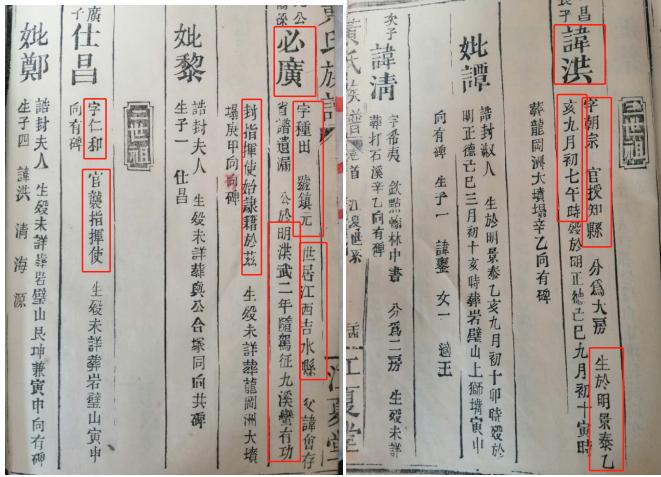 黃氏族譜 江夏堂
必廣 字種田 號鎮元 世居江西吉水縣 父諱會存
省譜遺漏 公於明洪武二年隨駕征九溪蠻有功
封指揮使始隸籍於茲 生歿未詳葬龍岡洲大墳
塌庚甲向有碑
妣黎 誥封夫人 生歿未詳葬與公合塚同向共碑
生子一 仕昌
二世祖
廣子 仕昌 字仁和 官襲指揮使 生歿未詳葬岩璧山寅申
向有碑
妣鄭 誥封夫人 生歿未詳葬岩璧山艮坤兼寅申向有碑
生子四 諱洪 清 海 源
三世祖
昌長子 諱洪 字朝宗 官授知縣 分為大房 生於明景泰乙
亥九月初七午時歿於明正德己巳九月初十寅時
葬龍岡洲大墳塌辛乙向有碑
妣譚 誥封淑人 生於明景泰乙亥九月初十卯時歿於
明正德己巳三月初十亥時葬岩璧山上獅墳寅申
向有碑 生子一 諱鑒 女一 適王
次子 諱清 字希夷 欽點翰林中書 分為二房 生歿未詳
葬打石溪辛乙向有碑
黃氏族譜 卷首 江夏世系 江夏堂